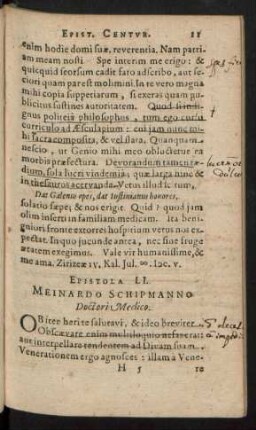 EPIST. CENTUR. 11
enim hodie domi suæ, reverentia. Nam patri-
am meam nosti. Spe interim me erigo: &
quicquid seorsum cadit fato adscribo, aut se-
riori quam par est molimini. In te vero magna
mihi copia suppetiarum, si exeras quam
publicitus sustines autoritatem. Quod si in di-
gnus politeia philosophus, tum ego cursu
curriculo ad Æsculapium: cui jam nunc
sacra composita, & celistara. Quanquam
nescio, ut Genio mihi meo obluctetur
morbis præfectura. Devorandum tamen
dium, sola lucri vindemia; quæ larga nunc &
in thesauros acervanda. Vetus illud Ictum,
Dat Galenus opes, dat Justinianus honores,
solatio sæpe, & nos erigit. Quid? quod jam
olim inserti in familiam medicam. Ita beni-
gniori fronte extorres hospitium verus nos ex-
pectat. In quo jucunde antea, nec sine fruge
ætatem exegimus. Vale vir humanissime, &
me ama. Zirizeæ IV. Kal. Jul. ∞. Ioc. V.
EPISTOLA LI.
MEINARDO SCHIPMANNO
Doctori Medico.
OBiter herite salutavi, & ideo breviter.
Obscærare enim multiloquio nefas
interpellare tendentem ad Divam suam.
Venerationem ergo agnosces: illam à Vene-
H 5 re